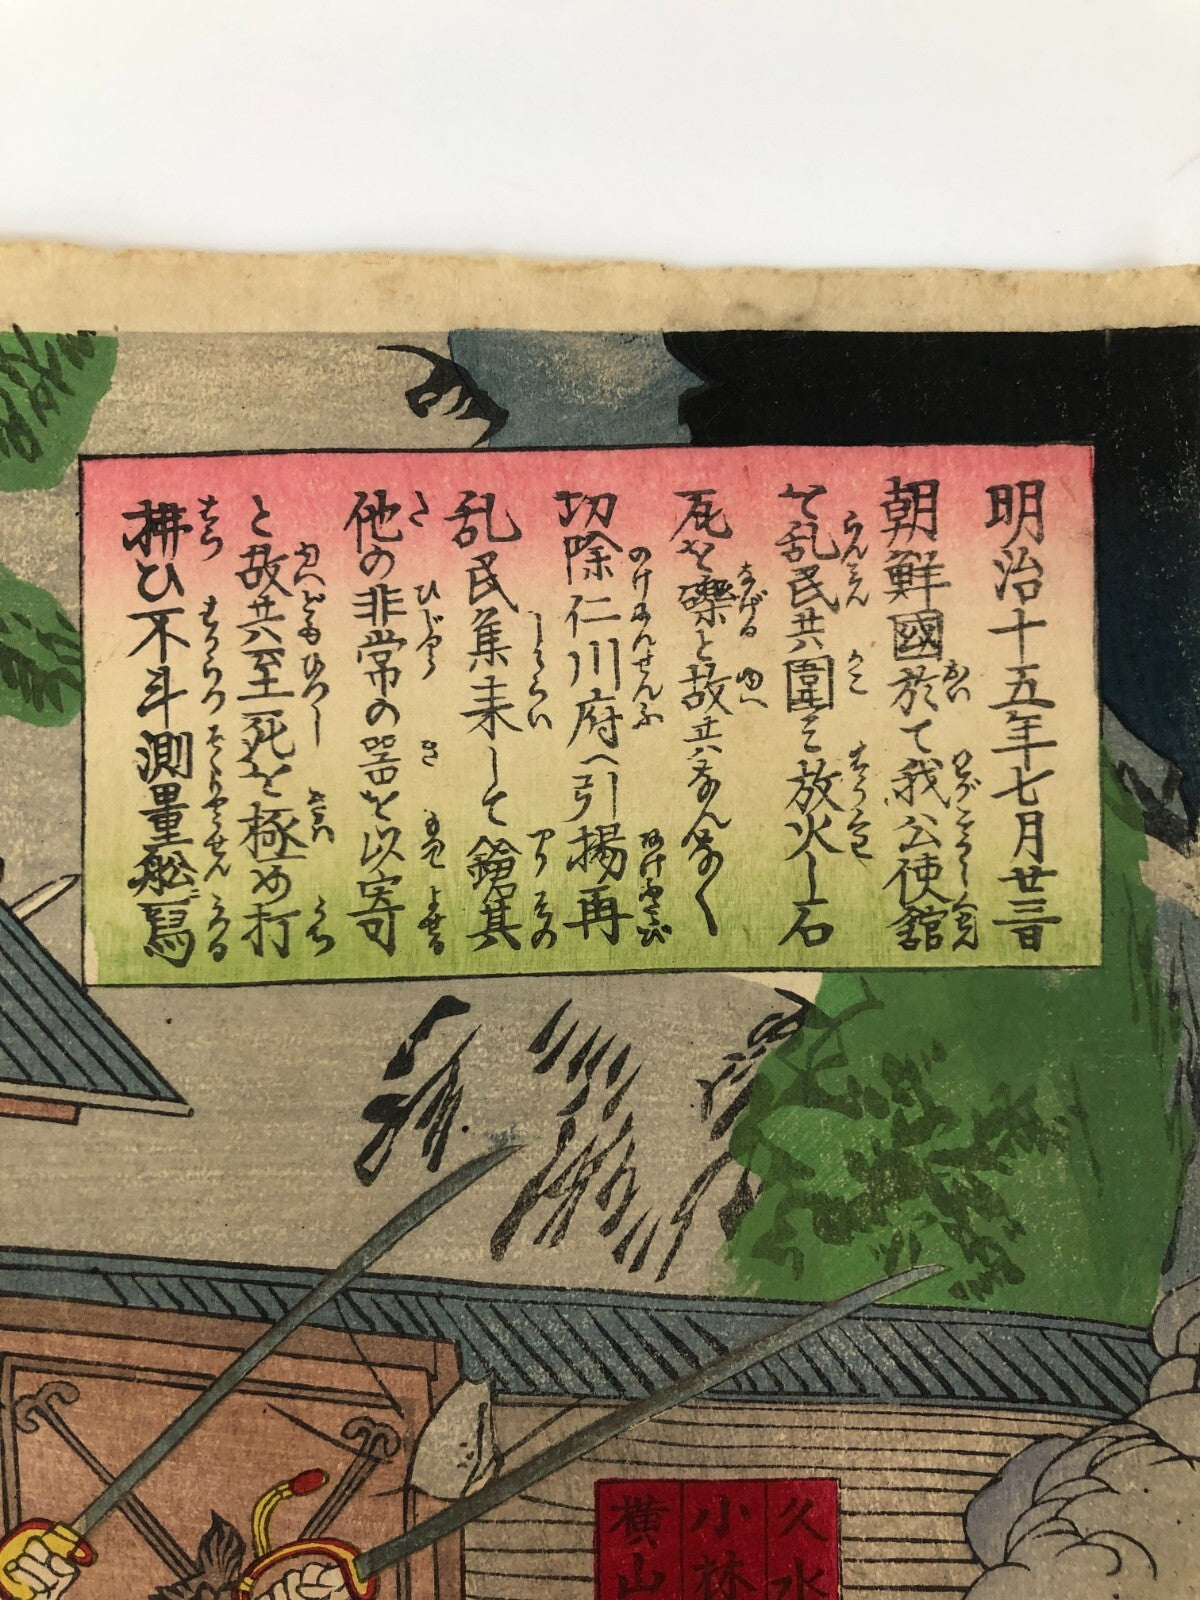 明治十五年七月廿三日
朝鮮國於て我公使舘
て乱民共圍を放火し石
瓦を礫と故共なんなく
切除仁川府へ引揚再
乱民集来して鎗其
他の非常の器を以寄
と故共至死を極め打
拂ひ不斗測量舩ニ駕
久水
小林
横山